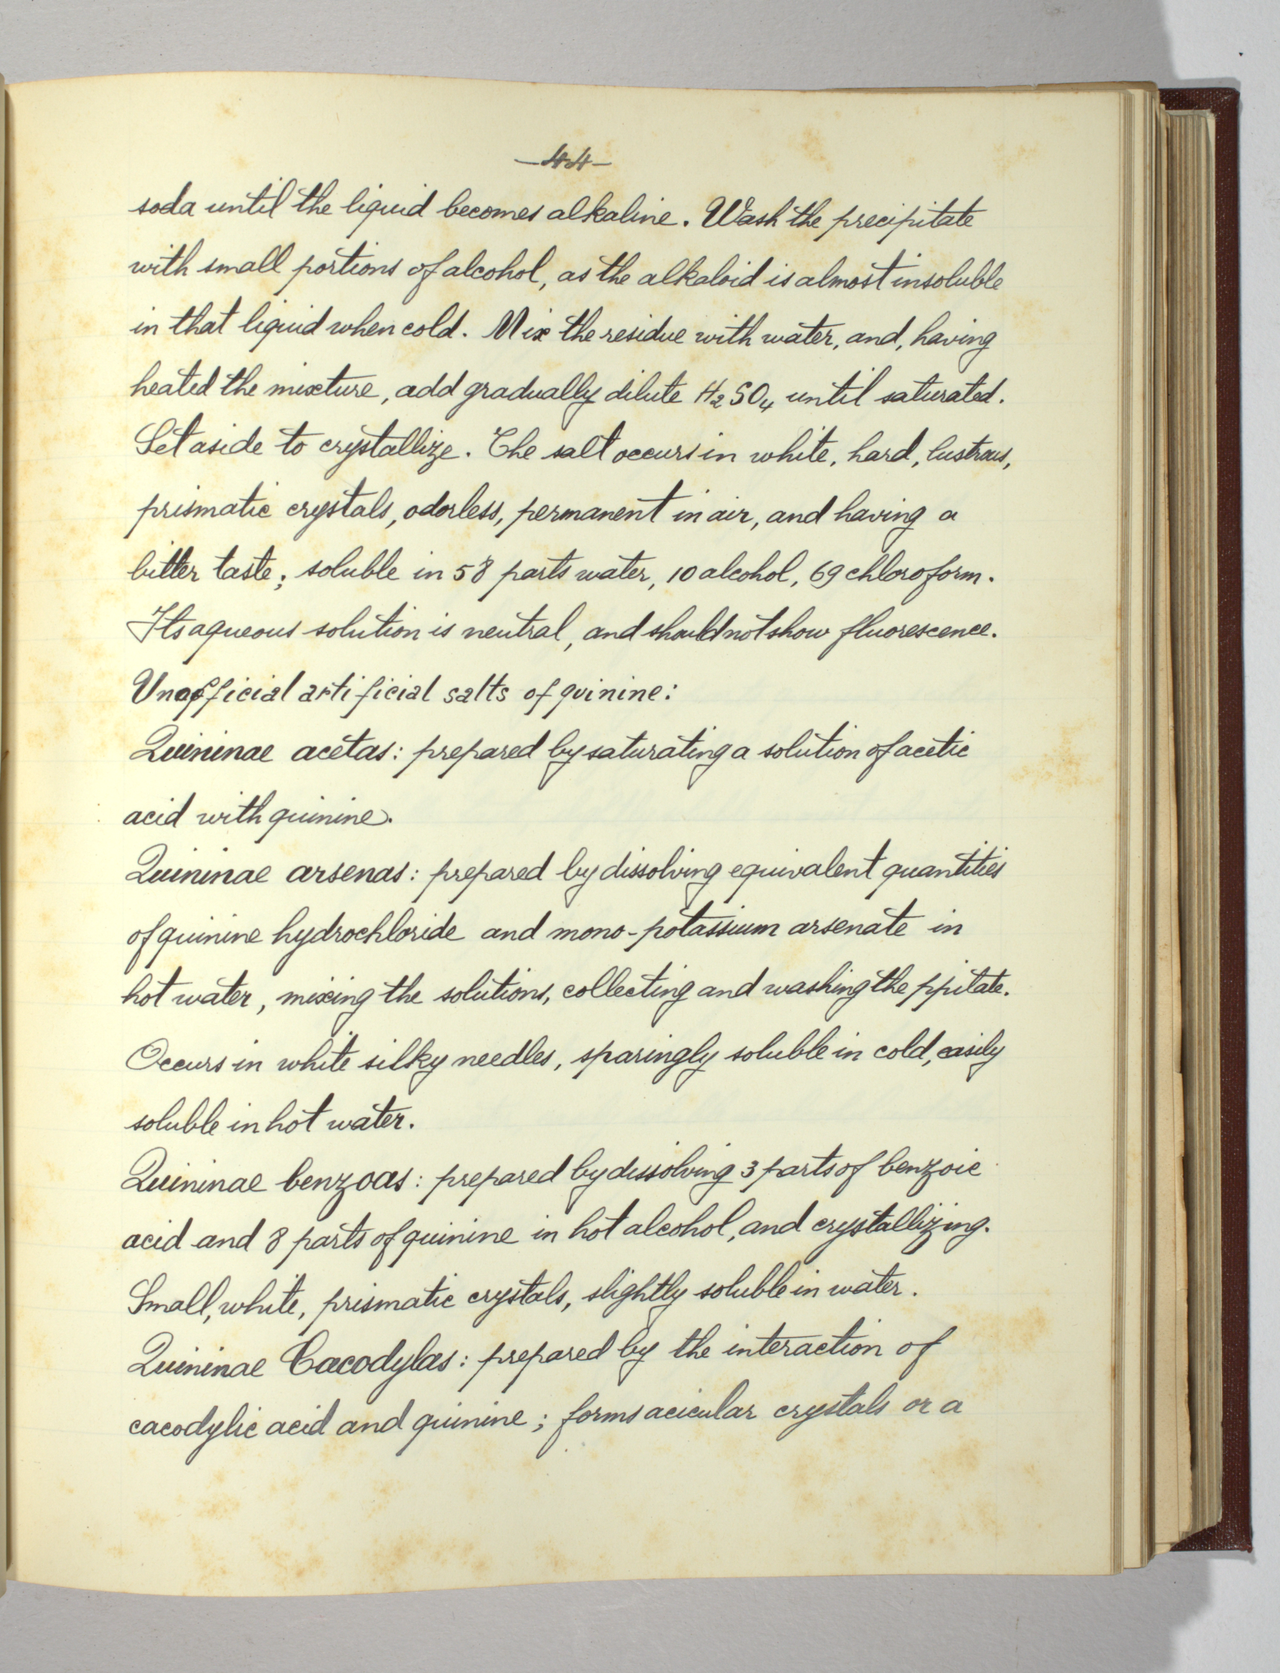 —44—
soda until the liquid becomes alkaline. Wash the precipitate
with small portions of alcohol, as the alkaloid is almost insoluble
in that liquid when cold. Mix the residue with water, and, having
heated the mixture, add gradually dilute H₂SO₄ until saturated.
Set aside to crystallize. The salt occurs in white, hard, lustrous,
prismatic crystals, odorless, permanent in air, and having a
bitter taste; soluble in 58 parts water, 10 alcohol, 69 chloroform.
Its aqueous solution is neutral, and should not show fluorescence.
Unofficial artificial salts of quinine:
Quininae acetas: prepared by saturating a solution of acetic
acid with quinine.
Quininae arsenas: prepared by dissolving equivalent quantities
of quinine hydrochloride and mono-potassium arsenate in
hot water, mixing the solutions, collecting and washing the ppitate.
Occurs in white silky needles, sparingly soluble in cold, easily
soluble in hot water.
Quininae benzoas: prepared by dissolving 3 parts of benzoic
acid and 8 parts of quinine in hot alcohol, and crystallizing.
Small, white, prismatic crystals, slightly soluble in water.
Quininae Cacodylas: prepared by the interaction of
cacodylic acid and quinine; forms acicular crystals or a